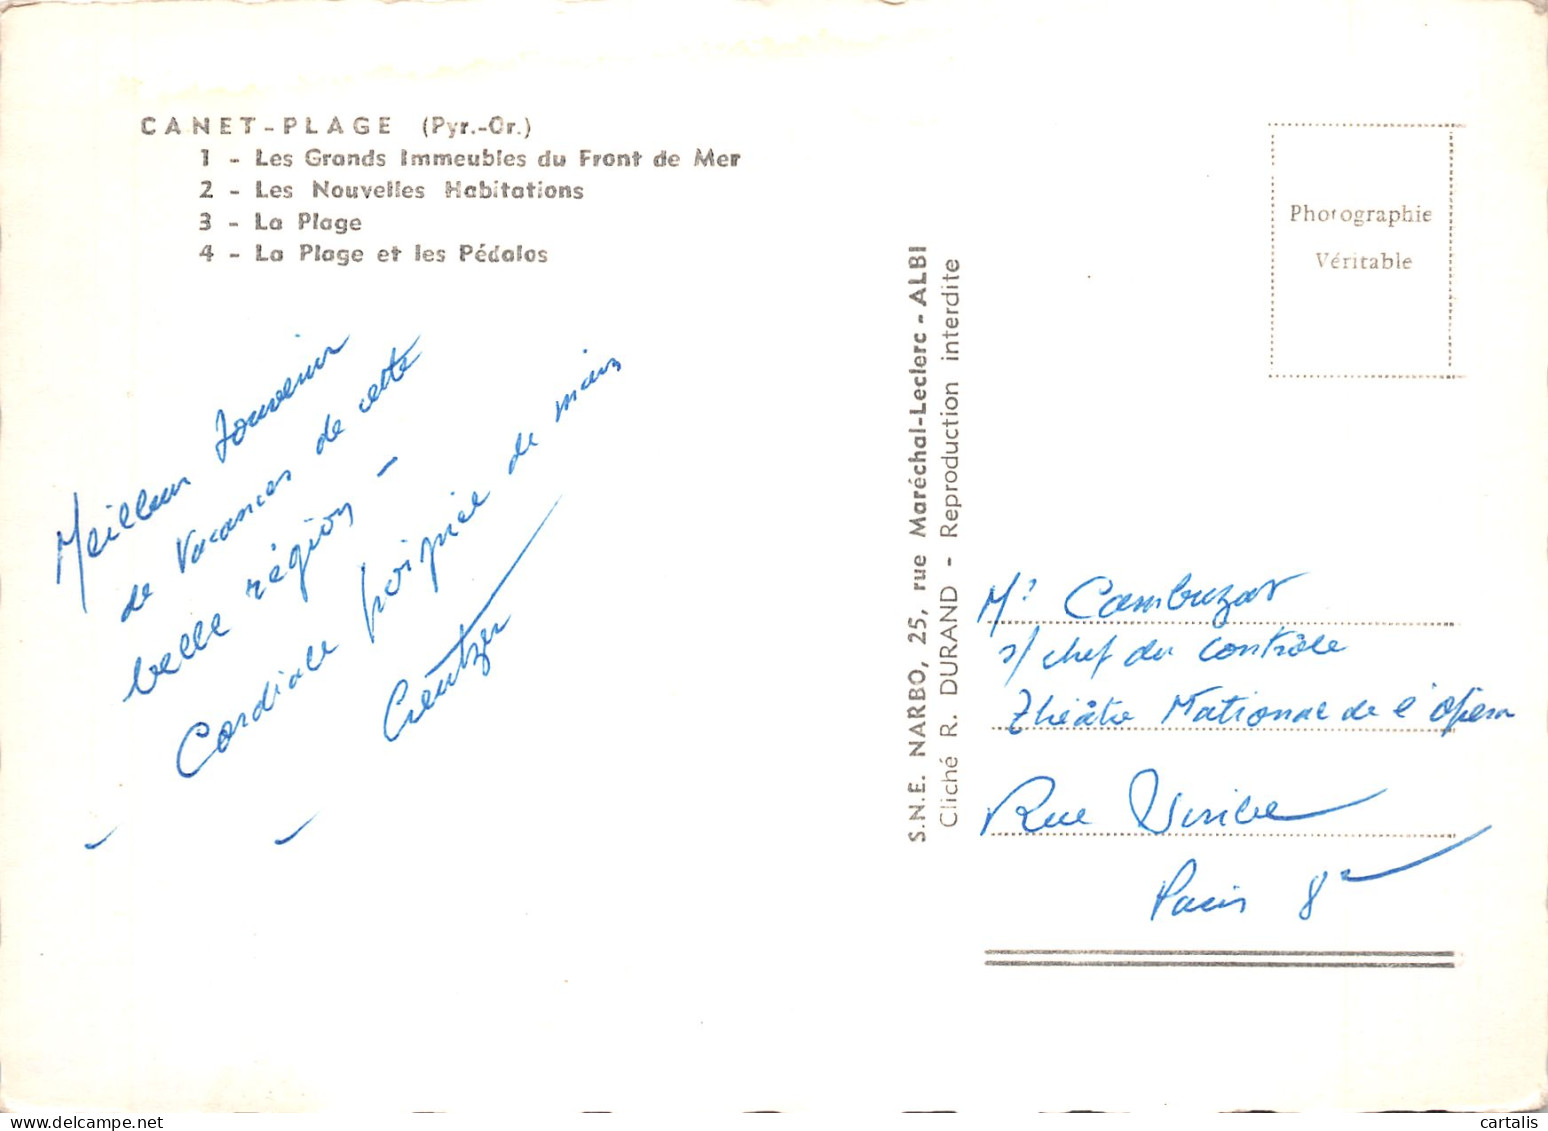 CANET-PLAGE (Pyr.-Or.)
1 - Les Grands Immeubles du Front de Mer
2 - Les Nouvelles Habitations
3 - La Plage
4 - La Plage et les Pédalos
Meilleur souvenir
de Vacances de cette
belle région -
Cordiale poignée de main
Creutzer
S.N.E. NARBO, 25, rue Maréchal-Leclerc - ALBI
Cliché R. DURAND - Reproduction interdite
Photographie
Véritable
Mr Cambuzat
s/ chef du contrôle
Théâtre National de l'opéra
Rue
Paris 8e
cartalis